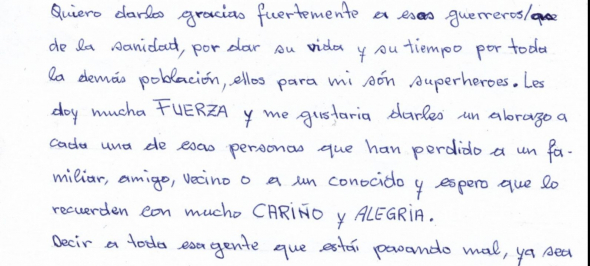 Quiero darles gracias fuertemente a esos guerreros/as
de la sanidad, por dar su vida y su tiempo por toda
la demás población, ellos para mi són superheroes. Les
doy mucha FUERZA y me gustaria darles un abrazo a
cada una de esas personas que han perdido a un fa-
miliar, amigo, vecino o a un conocido y espero que lo
recuerden con mucho CARIÑO y ALEGRIA.
Decir a toda esa gente que está pasando mal, ya sea